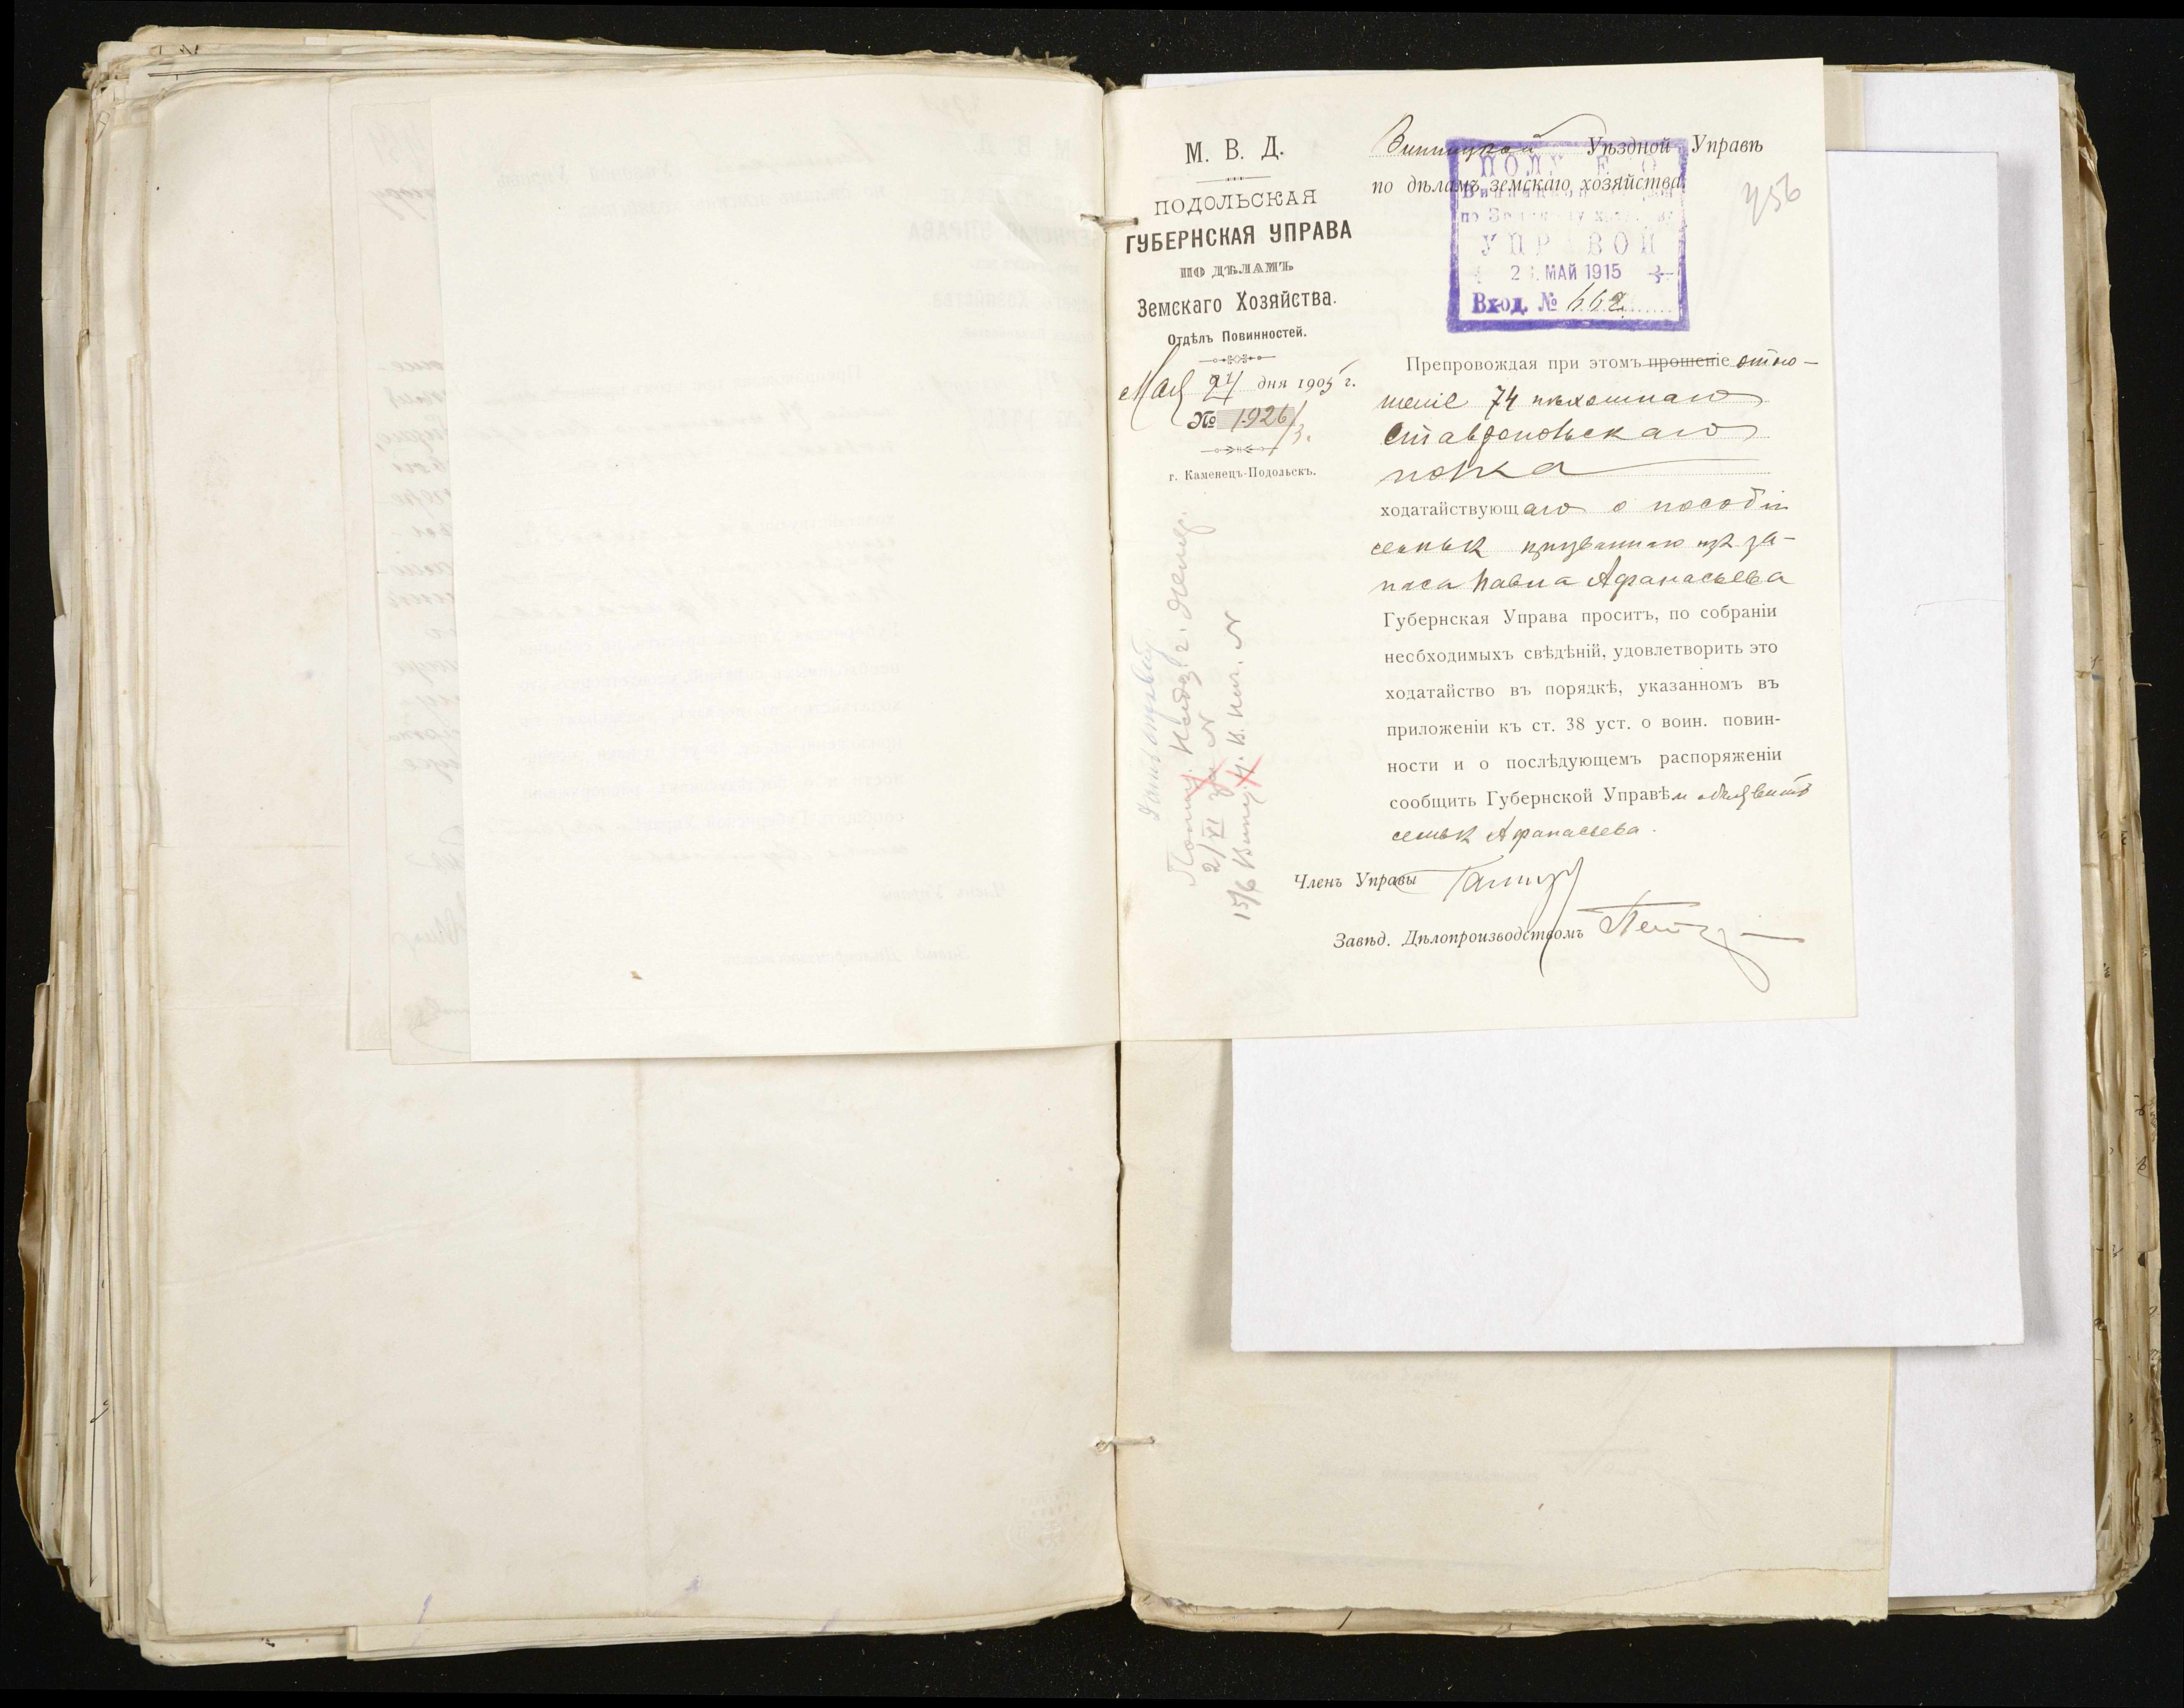 М. В. Д.
ПОДОЛЬСКАЯ
ГУБЕРНСКАЯ УПРАВА
ПО ДѢЛАМЪ
Земскаго Хозяйства.
Отдѣлъ Повинностей.
Мая 24 дня 1905 г.
№ 1926/3.
г. Каменецъ-Подольскъ.
Винницкой Уѣздной Управѣ
по дѣламъ земскаго хозяйства
456
УПРАВОЙ
МАЙ 1915
Вход. № 662
Препровождая при этомъ прошеніе отно-
шеніе 74 пѣхотнаго
Ставропольскаго
полка
ходатайствующаго о пособіи
семьѣ призваннаго изъ за-
паса Павла Афанасьева
Губернская Управа проситъ, по собраніи
необходимыхъ свѣдѣній, удовлетворить это
ходатайство въ порядкѣ, указанномъ въ
приложеніи къ ст. 38 уст. о воин. повин-
ности и о послѣдующемъ распоряженіи
сообщить Губернской Управѣ и объявить
семьѣ Афанасьева.
Членъ Управы
Завѣд. Дѣлопроизводствомъ